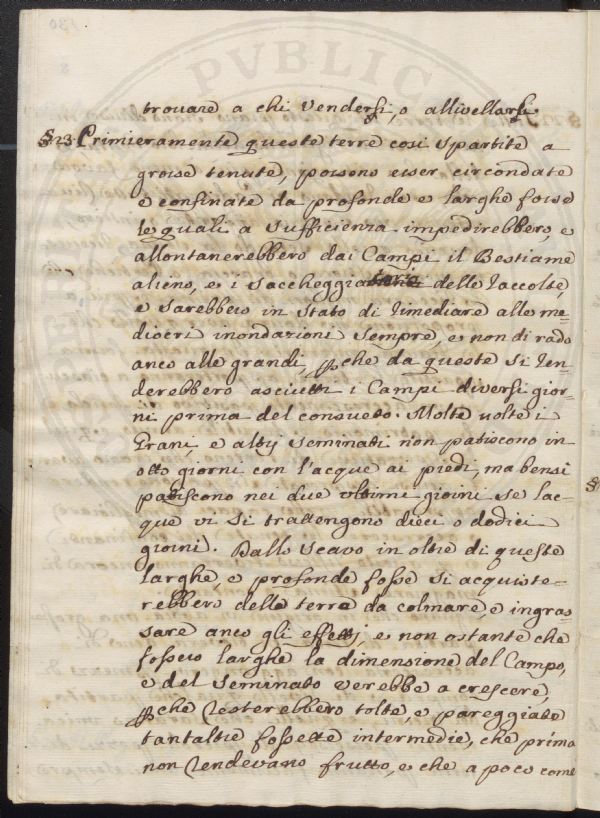 trovare a chi vendersi, o allivellarsi.
§23. Primieramente queste terre cosi spartite a
grosse tenute, possono esser circondate
e confinate da profonde e larghe fosse
le quali a sufficienza impedirebbero, e
allontanerebbero dai Campi il Bestiame
alieno, e i saccheggia delle racolte,
e sarebbero in stato di rimediare alle me-
diocri inondazioni sempre, e non di rado
anco alle grandi, pche da queste si ren-
derebbero asciutti i Campi diversi gior-
ni prima del consueto. Molte volte i
Grani, e altri seminati non patiscono in
otto giorni con l'acque ai piedi, ma bensi
patiscono nei due ultimi giorni se lac-
que vi si trattengono dieci o dodici
giorni. Dallo scavo in oltre di queste
larghe, e profonde fosse si acquiste-
rebbero delle terre da colmare, e ingras-
sare anco gli effetti, e non ostante che
fossero larghe la dimensione del Campo,
e del seminato verebbe a crescere,
pche resterebbero tolte, e pareggiate
tantaltre fossette intermedie, che prima
non rendevano frutto, e che a poco come
PVBLIC